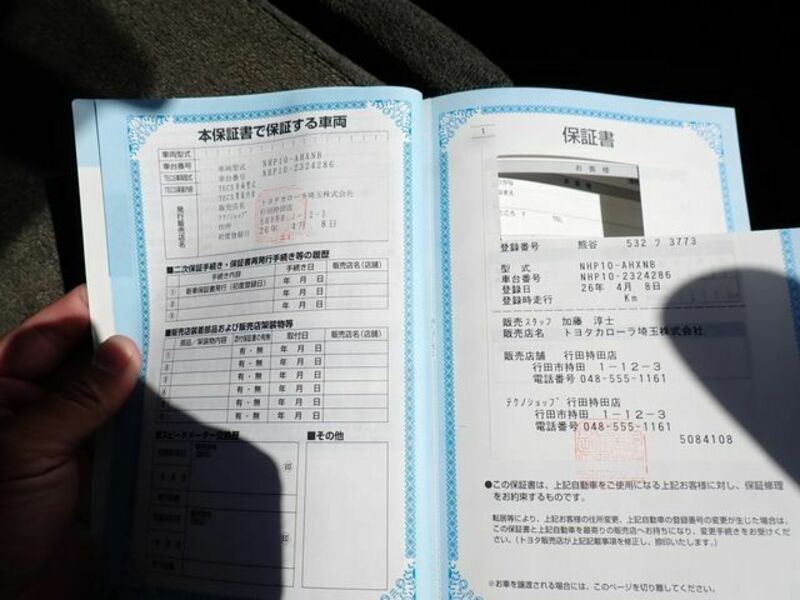 本保証書で保証する車両
車両型式
車台番号
車両型式 NHP10-AHXNB
車台番号 NHP10-2324286
発行販売店名
販売店名 トヨタカローラ埼玉株式会社
テクノショップ 行田持田店
住所
初度登録日 26年 4月 8日
■二次保証手続き・保証書再発行手続き等の履歴
手続き内容 手続き日 販売店名(店舗)
① 新車保証書発行(初度登録日) 年 月 日
② 年 月 日
③ 年 月 日
■販売店装着部品および販売店架装物等
部品/架装物内容 添付保証書の有無 取付日 販売店名(店舗)
① 有・無 年 月 日
② 有・無 年 月 日
③ 有・無 年 月 日
④ 有・無 年 月 日
⑤ 有・無 年 月 日
■スピードメーター交換歴
■その他
印
印
1
保証書
お客様
TEL
登録番号 熊谷 532 フ 3773
型式 NHP10-AHXNB
車台番号 NHP10-2324286
登録日 26年 4月 8日
登録時走行 Km
販売スタッフ 加藤 淳士
販売店名 トヨタカローラ埼玉株式会社
販売店舗 行田持田店
行田市持田 1-12-3
電話番号 048-555-1161
テクノショップ 行田持田店
行田市持田 1-12-3
電話番号 048-555-1161
5084108
●この保証書は、上記自動車をご使用になる上記お客様に対し、保証修理
をお約束するものです。
転居等により、上記お客様の住所変更、上記自動車の登録番号の変更が生じた場合は、
この保証書と上記自動車を最寄りの販売店へお持ちになり、変更手続きをお受けくだ
さい。(トヨタ販売店が上記記載事項を修正し、捺印いたします。)
※お車を譲渡される場合には、このページを切り離してください。